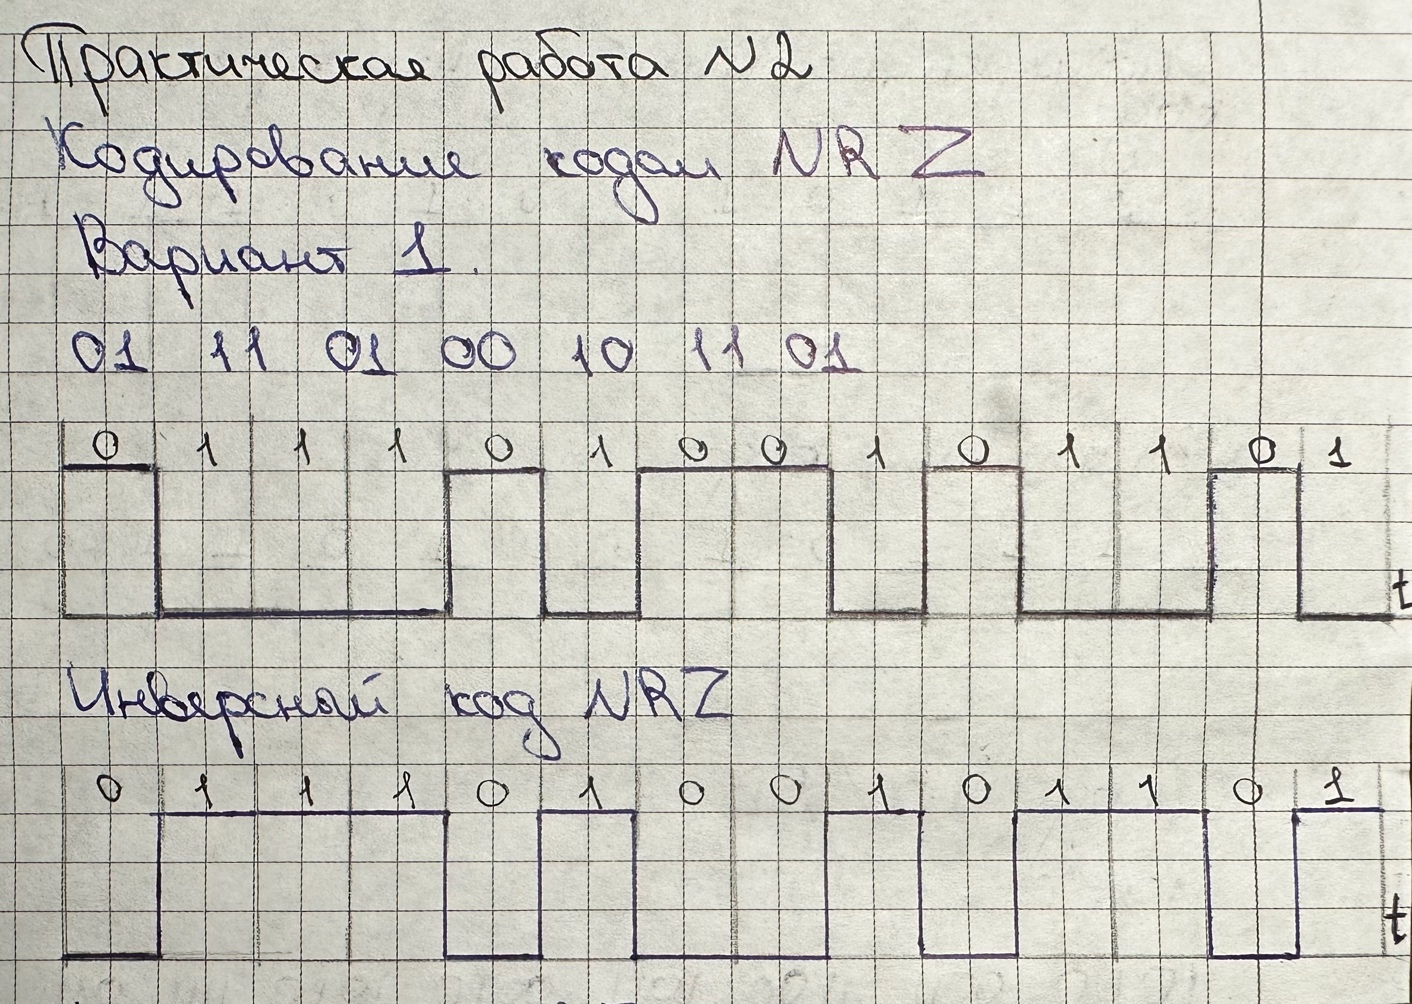 Практическая работа N2
Кодирование кодом NRZ
Вариант 1.
01 11 01 00 10 11 01
0 1 1 1 0 1 0 0 1 0 1 1 0 1
t
Инверсный код NRZ
0 1 1 1 0 1 0 0 1 0 1 1 0 1
t